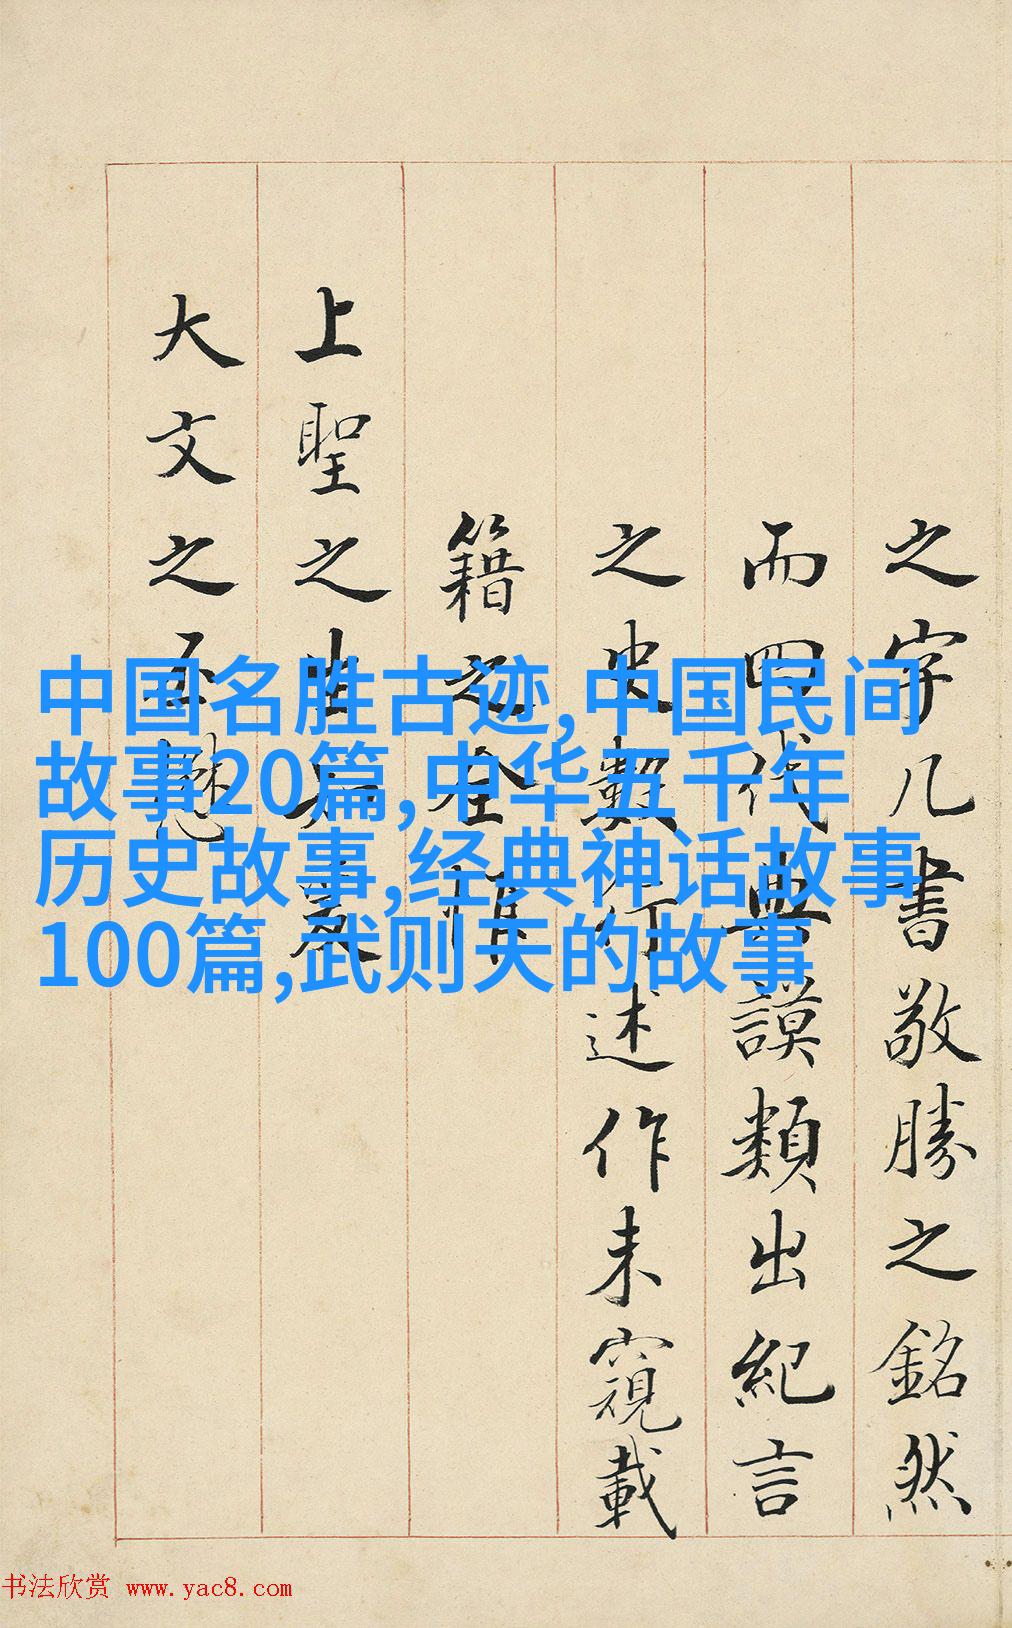 之字几書敬勝之銘然
而四代典謨類出紀言
之史數行述作未窺載
籍之全惟
上聖之生知奏
大文之丕懋
中国名胜古迹,中国民间
故事20篇,中华五千年
历史故事,经典神话故事
100篇,武则天的故事
书法欣赏 www.yac8.com